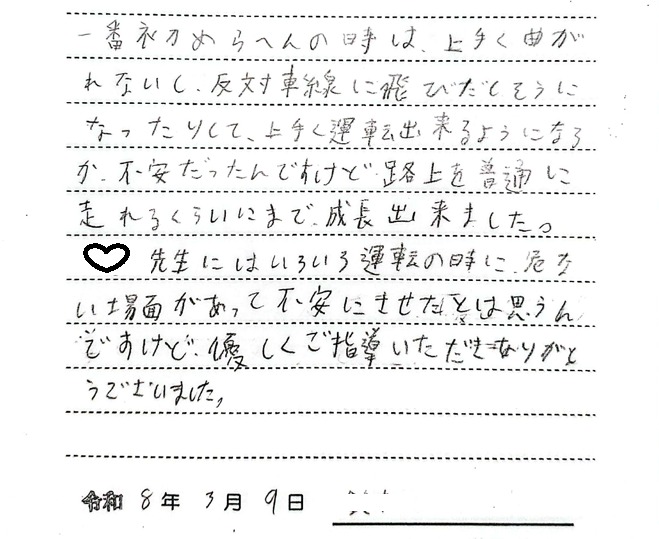 一番初めらへんの時は、上手く曲が
れないし、反対車線に飛びだしそうに
なったりして、上手く運転出来るようになる
か、不安だったんですけど路上を普通に
走れるくらいにまで、成長出来ました。
♡ 先生にはいろいろ運転の時に、危な
い場面があって不安にさせたとは思うん
ですけど、優しくご指導いただきありがと
うございました。
令和 8年 3月 9日